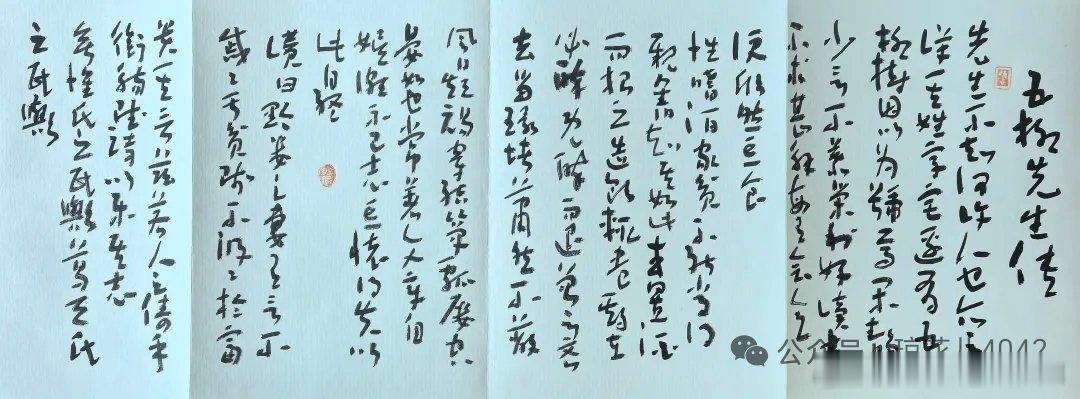 五柳先生传
先生不知何许人也亦不
详其姓字宅邊有五
柳樹因以为號焉闲静
少言不慕荣利好读书
不求甚解每有会意
便欣然忘食
性嗜酒家貧不能常得
親舊知其如此或置酒
而招之造飲輒尽期在
必醉既醉而退曾不吝
去留環堵萧然不蔽
風日短褐穿結箪瓢屡空
晏如也常著文章自
娱颇示己志忘懷得失以
此自终
赞曰黔娄之妻有言不
戚々于貧賤不汲々於富
贵其言兹若人之儔乎
銜觴赋詩以樂其志
無懷氏之民歟葛天氏
之民歟
公众号